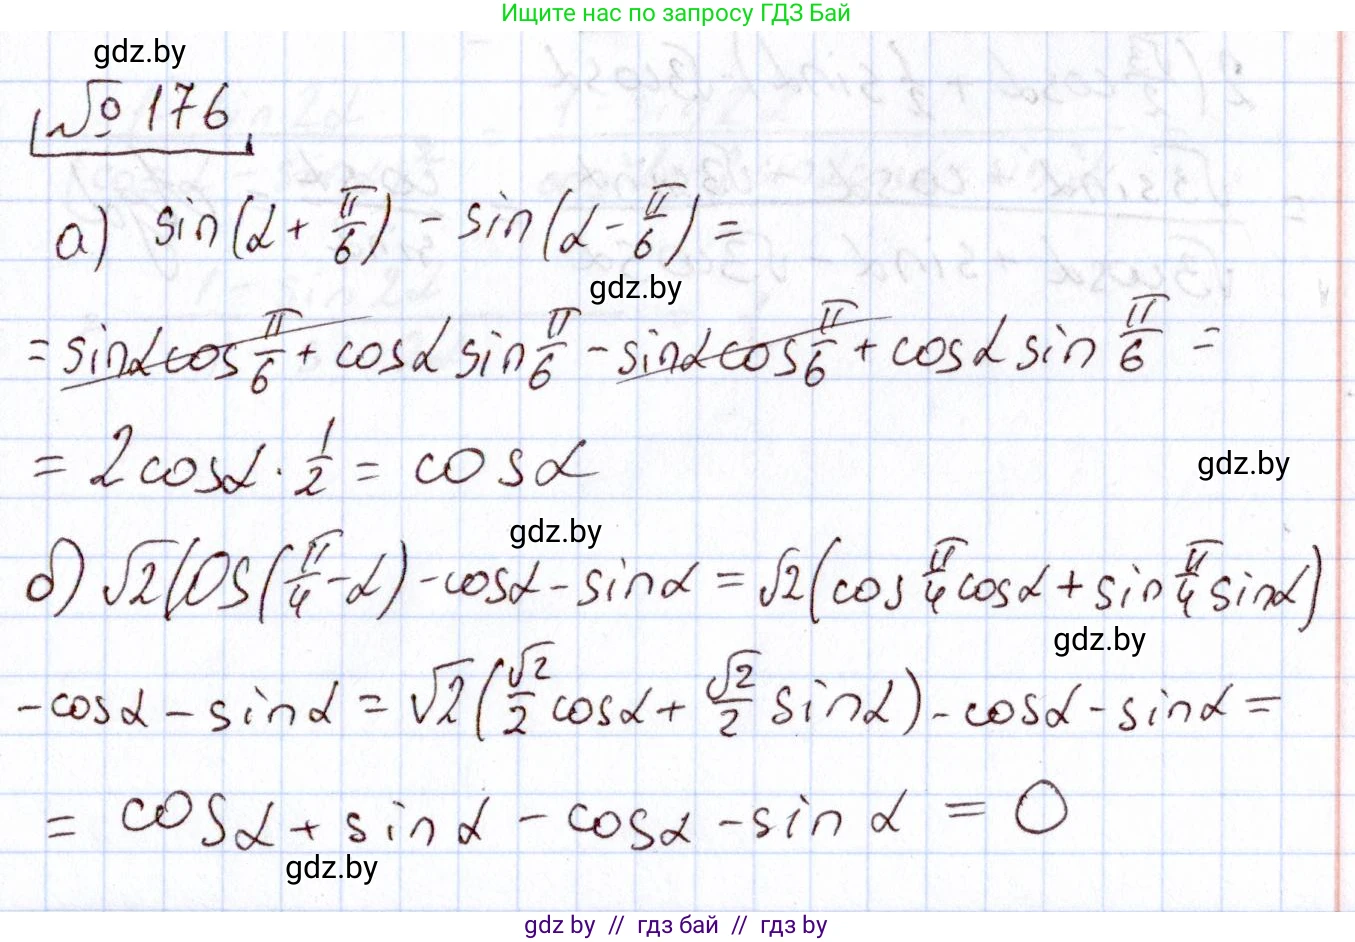 Ищите нас по запросу ГДЗ Бай
gdz.by
№ 176
а) sin(α + π/6) - sin(α - π/6) =
gdz.by
= sinαcosπ/6 + cosα sinπ/6 - sinαcosπ/6 + cosα sin π/6 =
= 2cosα · 1/2 = cosα
gdz.by
gdz.by
б) √2 cos(π/4 - α) - cosα - sinα = √2(cosπ/4 cosα + sinπ/4 sinα)
gdz.by
- cosα - sinα = √2(√2/2 cosα + √2/2 sinα) - cosα - sinα =
= cosα + sinα - cosα - sinα = 0
gdz.by
gdz.by // гдз бай // гдз by